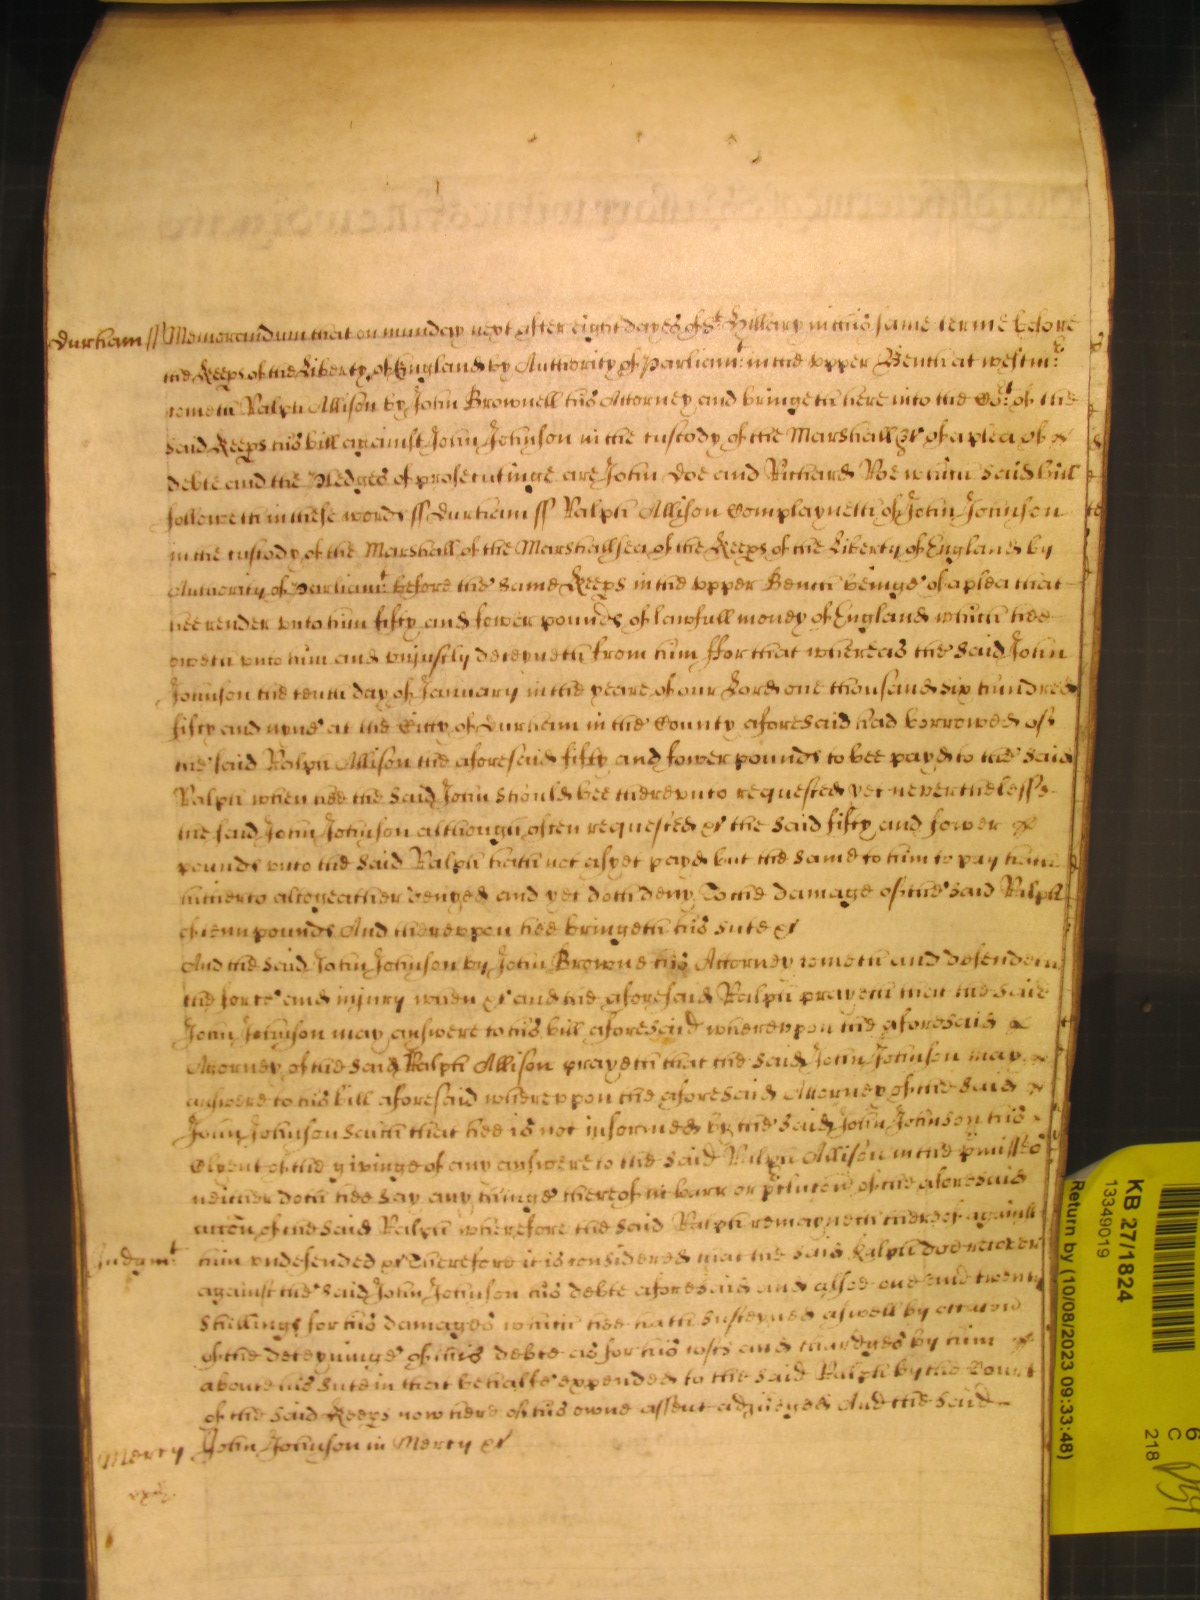 Durham ss Memorandum that on munday next after eight dayes of St Hillary in this same terme before
the Keeps of the Liberty of England by Authority of Parliamt in the upper Bench at westmr
cometh Ralph Allison by John Brownell his Attorney and bringeth here into the Cort of the
said Keeps his bill against John Johnson in the custody of the Marshall &c of a plea of
debte and the Pledges of prosecutinge are John Doe and Richard Roe which said bill
followeth in these words ss Durham ss Ralph Allison Complayneth of John Johnson
in the custody of the Marshall of the Marshallsea of the Keeps of the Liberty of England by
Authority of Parliamt before the same Keeps in the upper Bench beinge of a plea that
hee render unto him fifty and fower pounds of lawfull money of England which hee
oweth unto him and unjustly deteyneth from him ffor that whereas the said John
Johnson the tenth day of January in the yeare of our Lord one thousand six hundred
fifty and nyne at the Citty of Durham in the County aforesaid had borrowed of
the said Ralph Allison the aforesaid fifty and fower pounds to bee payd to the said
Ralph when hee the said John should bee thereunto requested yet neverthelesse
the said John Johnson although often requested &c the said fifty and fower
pounds unto the said Ralph hath not as yet payd but the same to him to pay hath
hitherto altogeather denyed and yet doth deny To the damage of the said Ralph
of tenn pounds And thereuppon hee bringeth his sute &c
And the said John Johnson by John Browne his Attorney cometh and defendeth
the force and injury when &c and the aforesaid Ralph prayeth that the said
John Johnson may answere to his bill aforesaid whereupon the aforesaid
Attorney of the said Ralph Allison prayeth that the said John Johnson may
answere to his bill aforesaid whereuppon the aforesaid Attorney of the said
John Johnson saith that hee is not informed by the said John Johnson his
Clyent of the givinge of any answere to the said Ralph Allison in the pmisses
neither doth hee say any thinge thereof in barr or of the aforesaid
accon of the said Ralph wherefore the said Ralph remayneth thereof against
Judgmt him undefended &c Therefore it is considered that the said Ralph doe recover
against the said John Johnson his debte aforesaid and alsoe one and twenty
shillings for his damages which hee hath susteyned aswell by occacon
of the deteyninge of this debte as for his costs and chardges by him
aboute his sute in that behalfe expended to the said Ralph by the Court
of the said Keeps now here of his owne assent adjudged And the said
Mercy John Johnson in Mercy &c
KB 27/1824
13349019
Return by (10/08/2023 09:33:48)
6
C
218